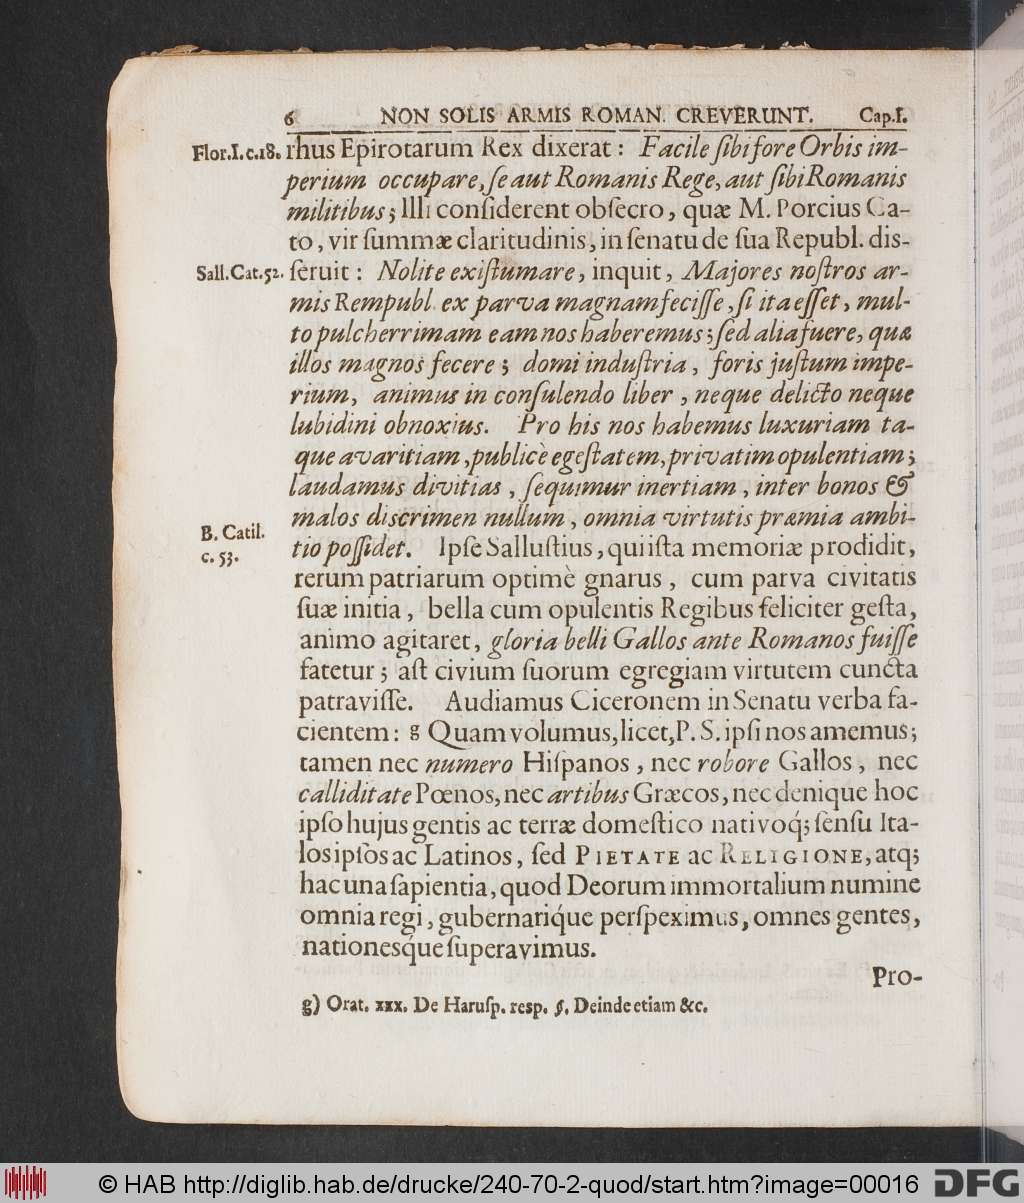 6 NON SOLIS ARMIS ROMAN. CREVERUNT. Cap.I.
Flor.I.c.18. rhus Epirotarum Rex dixerat: Facile ſibi fore Orbis im-
perium occupare, ſe aut Romanis Rege, aut ſibi Romanis
militibus; Illi conſiderent obſecro, quæ M. Porcius Ca-
to, vir ſummæ claritudinis, in ſenatu de ſua Republ. dis-
Sall.Cat.52. ſeruit: Nolite exiſtumare, inquit, Majores noſtros ar-
mis Rempubl. ex parva magnam feciſſe, ſi ita eſſet, mul-
to pulcherrimam eam nos haberemus; ſed alia fuere, quæ
illos magnos fecere; domi induſtria, foris juſtum impe-
rium, animus in conſulendo liber, neque delicto neque
lubidini obnoxius. Pro his nos habemus luxuriam ta-
que avaritiam, publicè egeſtatem, privatim opulentiam;
laudamus divitias, ſequimur inertiam, inter bonos &
malos discrimen nullum, omnia virtutis præmia ambi-
B. Catil.
c. 53.
tio poſſidet. Ipſe Salluſtius, qui iſta memoriæ prodidit,
rerum patriarum optimè gnarus, cum parva civitatis
ſuæ initia, bella cum opulentis Regibus feliciter geſta,
animo agitaret, gloria belli Gallos ante Romanos fuiſſe
fatetur; aſt civium ſuorum egregiam virtutem cuncta
patraviſſe. Audiamus Ciceronem in Senatu verba fa-
cientem: g Quam volumus, licet, P. S. ipſi nos amemus;
tamen nec numero Hiſpanos, nec robore Gallos, nec
calliditate Pœnos, nec artibus Græcos, nec denique hoc
ipſo hujus gentis ac terræ domeſtico nativoq́; ſenſu Ita-
los ipſos ac Latinos, ſed PIETATE ac RELIGIONE, atq;
hac una ſapientia, quod Deorum immortalium numine
omnia regi, gubernariq́ue perſpeximus, omnes gentes,
nationesq́ue ſuperavimus.
Pro-
g) Orat. XXX. De Haruſp. resp. §. Deinde etiam &c.
© HAB http://diglib.hab.de/drucke/240-70-2-quod/start.htm?image=00016
DFG